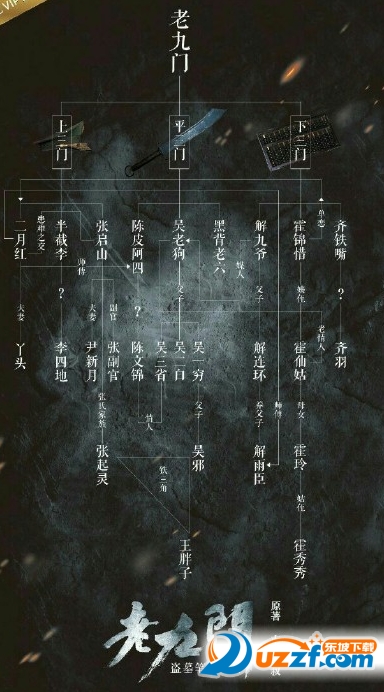 VIP
老九门
上三门
平三门
下三门
二月红
半截李
张启山
陈皮阿四
吴老狗
黑背老六
解九爷
霍锦惜
齐铁嘴
患难之交
师傅
父子
媒人
单恋
夫妻
?
夫妻
副官
?
父子
姑侄
老情人
?
丫头
李四地
尹新月
张副官
陈文锦
吴三省
吴二白
吴一穷
解连环
霍仙姑
齐羽
张氏家族
情人
父子
养父子
师傅
母女
张起灵
铁三角
吴邪
解雨臣
霍玲
姑侄
王胖子
霍秀秀
老九門
盗墓笔
原著
东坡下载
uzzf.com